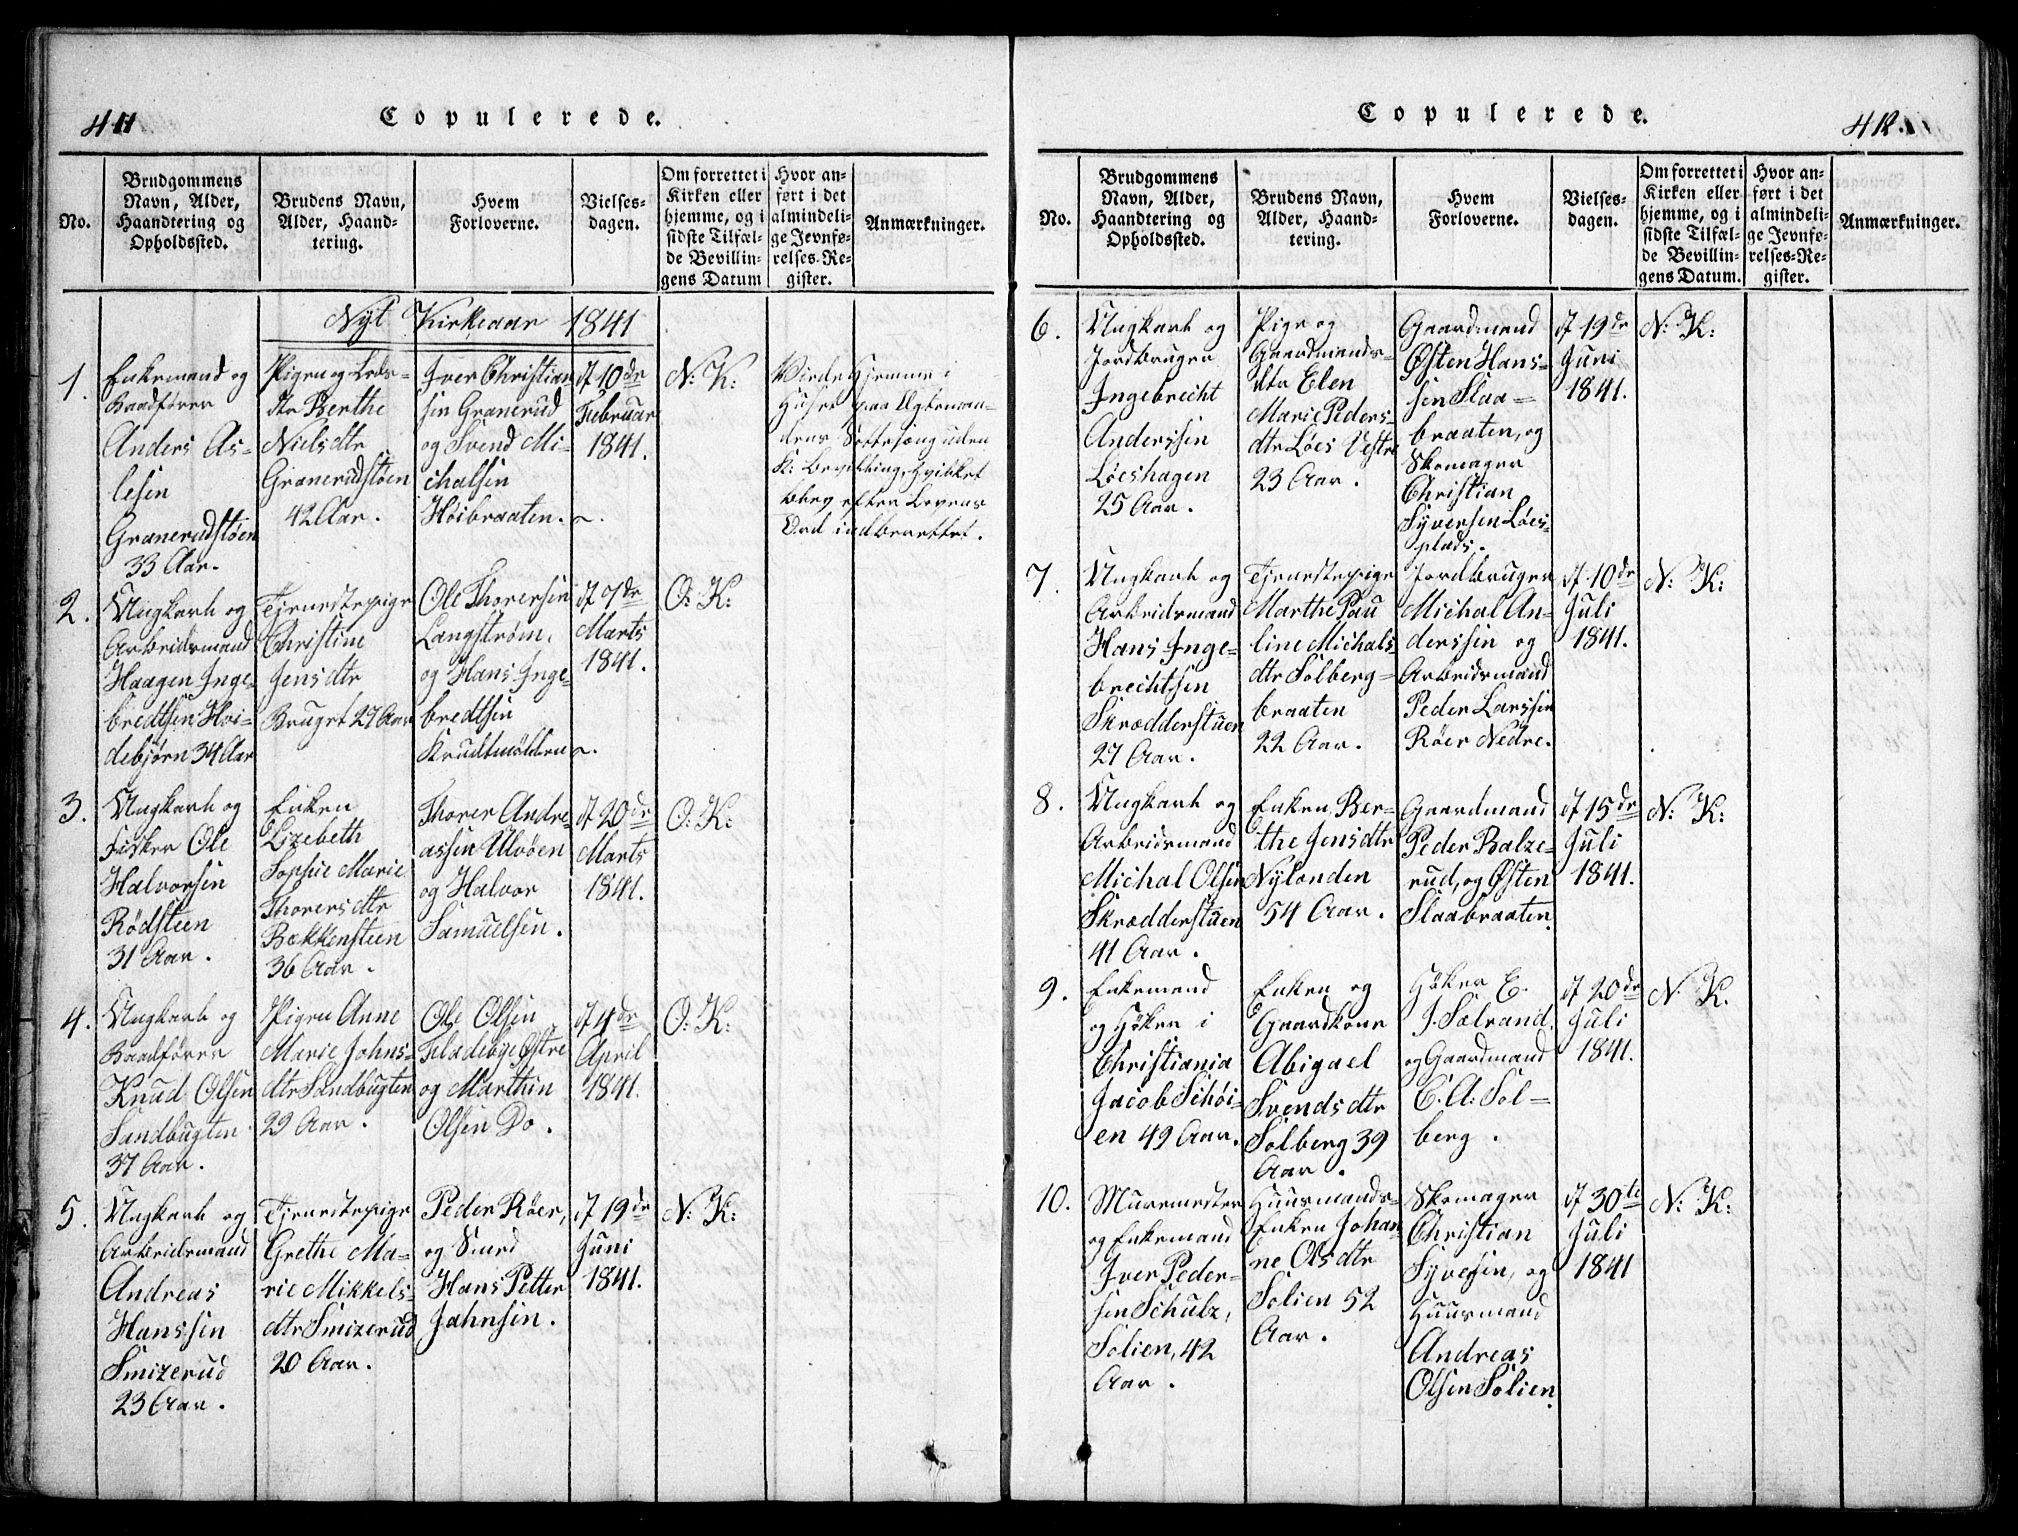 411
Copulerede.
No.
Brudgommens
Navn, Alder,
Haandtering og
Opholdssted.
Brudens Navn,
Alder, Haand-
tering.
Hvem
Forloverne.
Vielses-
dagen.
Om forrettet i
Kirken eller
hjemme, og i
sidste Tilfæl-
de Bevillin-
gens Datum
Hvor an-
ført i det
almindeli-
ge Jevnfø-
relses-Re-
gister.
Anmærkninger.
Nyt Kirkeaar 1841
1.
Enkemand og
Baadfører
Anders As-
lesen
Granerudstøen
33 Aar.
Pigen og
dtr Berthe
Nielsdtr
Granerudstøen
42 Aar.
Iver Christian
sen Granerud
og Svend Mi-
chalsen
Høibraaten.
d 10de
Februar
1841.
N: K:
Viede Hjemme i
Huset paa Ægteman-
dens Sottesæng uden
K: Bevilling, hvilket
blev efter Lovens
Ord indberettet.
2.
Ungkarl og
Arbeidsmand
Haagen Inge-
bredtsen Hvi-
debjørn 34 Aar
Tjenestepige
Christine
Jensdtr
Bruget 27 Aar
Ole Thoresen
Langstrøm,
og Hans Inge-
bredtsen
Krudtmøllen
d 7de
Marts
1841.
O: K:
3.
Ungkarl og
Fisker Ole
Halvorsen
Rødsteen
31 Aar.
Enken
Lizebeth
Sophie Marie
Thorersdtr
Bækkensteen
36 Aar.
Thorer Andre-
assen Ulvøen
og Halvor
Samuelsen.
d 20de
Marts
1841.
O: K:
4.
Ungkarl og
Baadfører
Knud Olsen
Sandbugten
37 Aar.
Pigen Anne
Marie Johns-
dtr Sandbugten
29 Aar.
Ole Olsen
Fladebye Østre
og Marthin
Olsen Do.
d 4de
April
1841.
O: K:
5.
Ungkarl og
Arbeidsmand
Andreas
Hanssen
Smizerud
23 Aar.
Tjenestepige
Grethe Ma-
rie Mikkels-
dtr Smizerud
20 Aar.
Peder Röer,
og Smed
Hans Petter
Jahnsen.
d 19de
Juni
1841.
N: K:
Copulerede.
412.
No.
Brudgommens
Navn, Alder,
Haandtering og
Opholdssted.
Brudens Navn,
Alder, Haand-
tering.
Hvem
Forloverne.
Vielses-
dagen.
Om forrettet i
Kirken eller
hjemme, og i
sidste Tilfæl-
de Bevillin-
gens Datum.
Hvor an-
ført i det
almindeli-
ge Jevnfø-
relses-Re-
gister.
Anmærkninger.
6.
Ungkarl og
Jordbruger
Ingebrecht
Anderssen
Löeshagen
25 Aar.
Pige og
Gaardmands-
dtr Elen
Marie Peders-
dtr Löes Vestre
23 Aar.
Gaardmand
Østen Hans-
sen Slaa-
braaten, og
Skomager
Christian
Syversen Löes-
plads.
d 19de
Juni
1841.
N: K:
7.
Ungkarl og
Arbeidsmand
Hans Inge-
brechtsen
Skrædderstuen
27 Aar.
Tjenestepige
Marthe Pau
line Michals-
dtr Solberg-
braaten
22 Aar.
Jordbruger
Michal An-
derssen og
Arbeidsmand
Peder Larssen
Röer Nedre.
d 10de
Juli
1841.
N: K:
8.
Ungkarl og
Arbeidsmand
Michal Olsen
Skrædderstuen
41 Aar.
Enken Ber-
the Jensdtr
Nylænden
54 Aar.
Gaardmand
Peder Balze-
rud, og Østen
Slaabraaten.
d 15de
Juli
1841.
N: K:
9.
Enkemand
og Høker i
Christiania
Jacob Schöi-
en 49 Aar.
Enken og
Gaardkone
Abigael
Svendsdtr
Solberg 39
Aar.
Høker E.
J. Sælrand
og Gaardmand
C. A: Sol-
berg.
d 20de
Juli
1841.
N: K.
10.
Muremester
og Enkemand
Iver Peder-
sen Schulz,
Solien, 42
Aar.
Huusmands-
Enken Johan
ne Olsdtr
Solien 52
Aar.
Skomager
Christian
Syvesen, og
Huusmand
Andreas
Olsen Solien.
d 30te
Juli
1841
N: K: